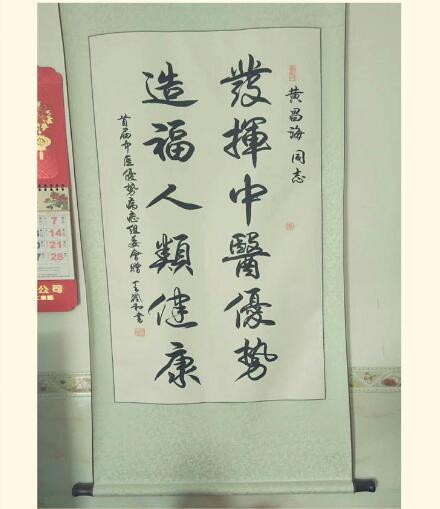 黄昌海 同志
發揮中醫優勢
造福人類健康
首届中医優势病症组委會贈
书
公司
7
14
21
28